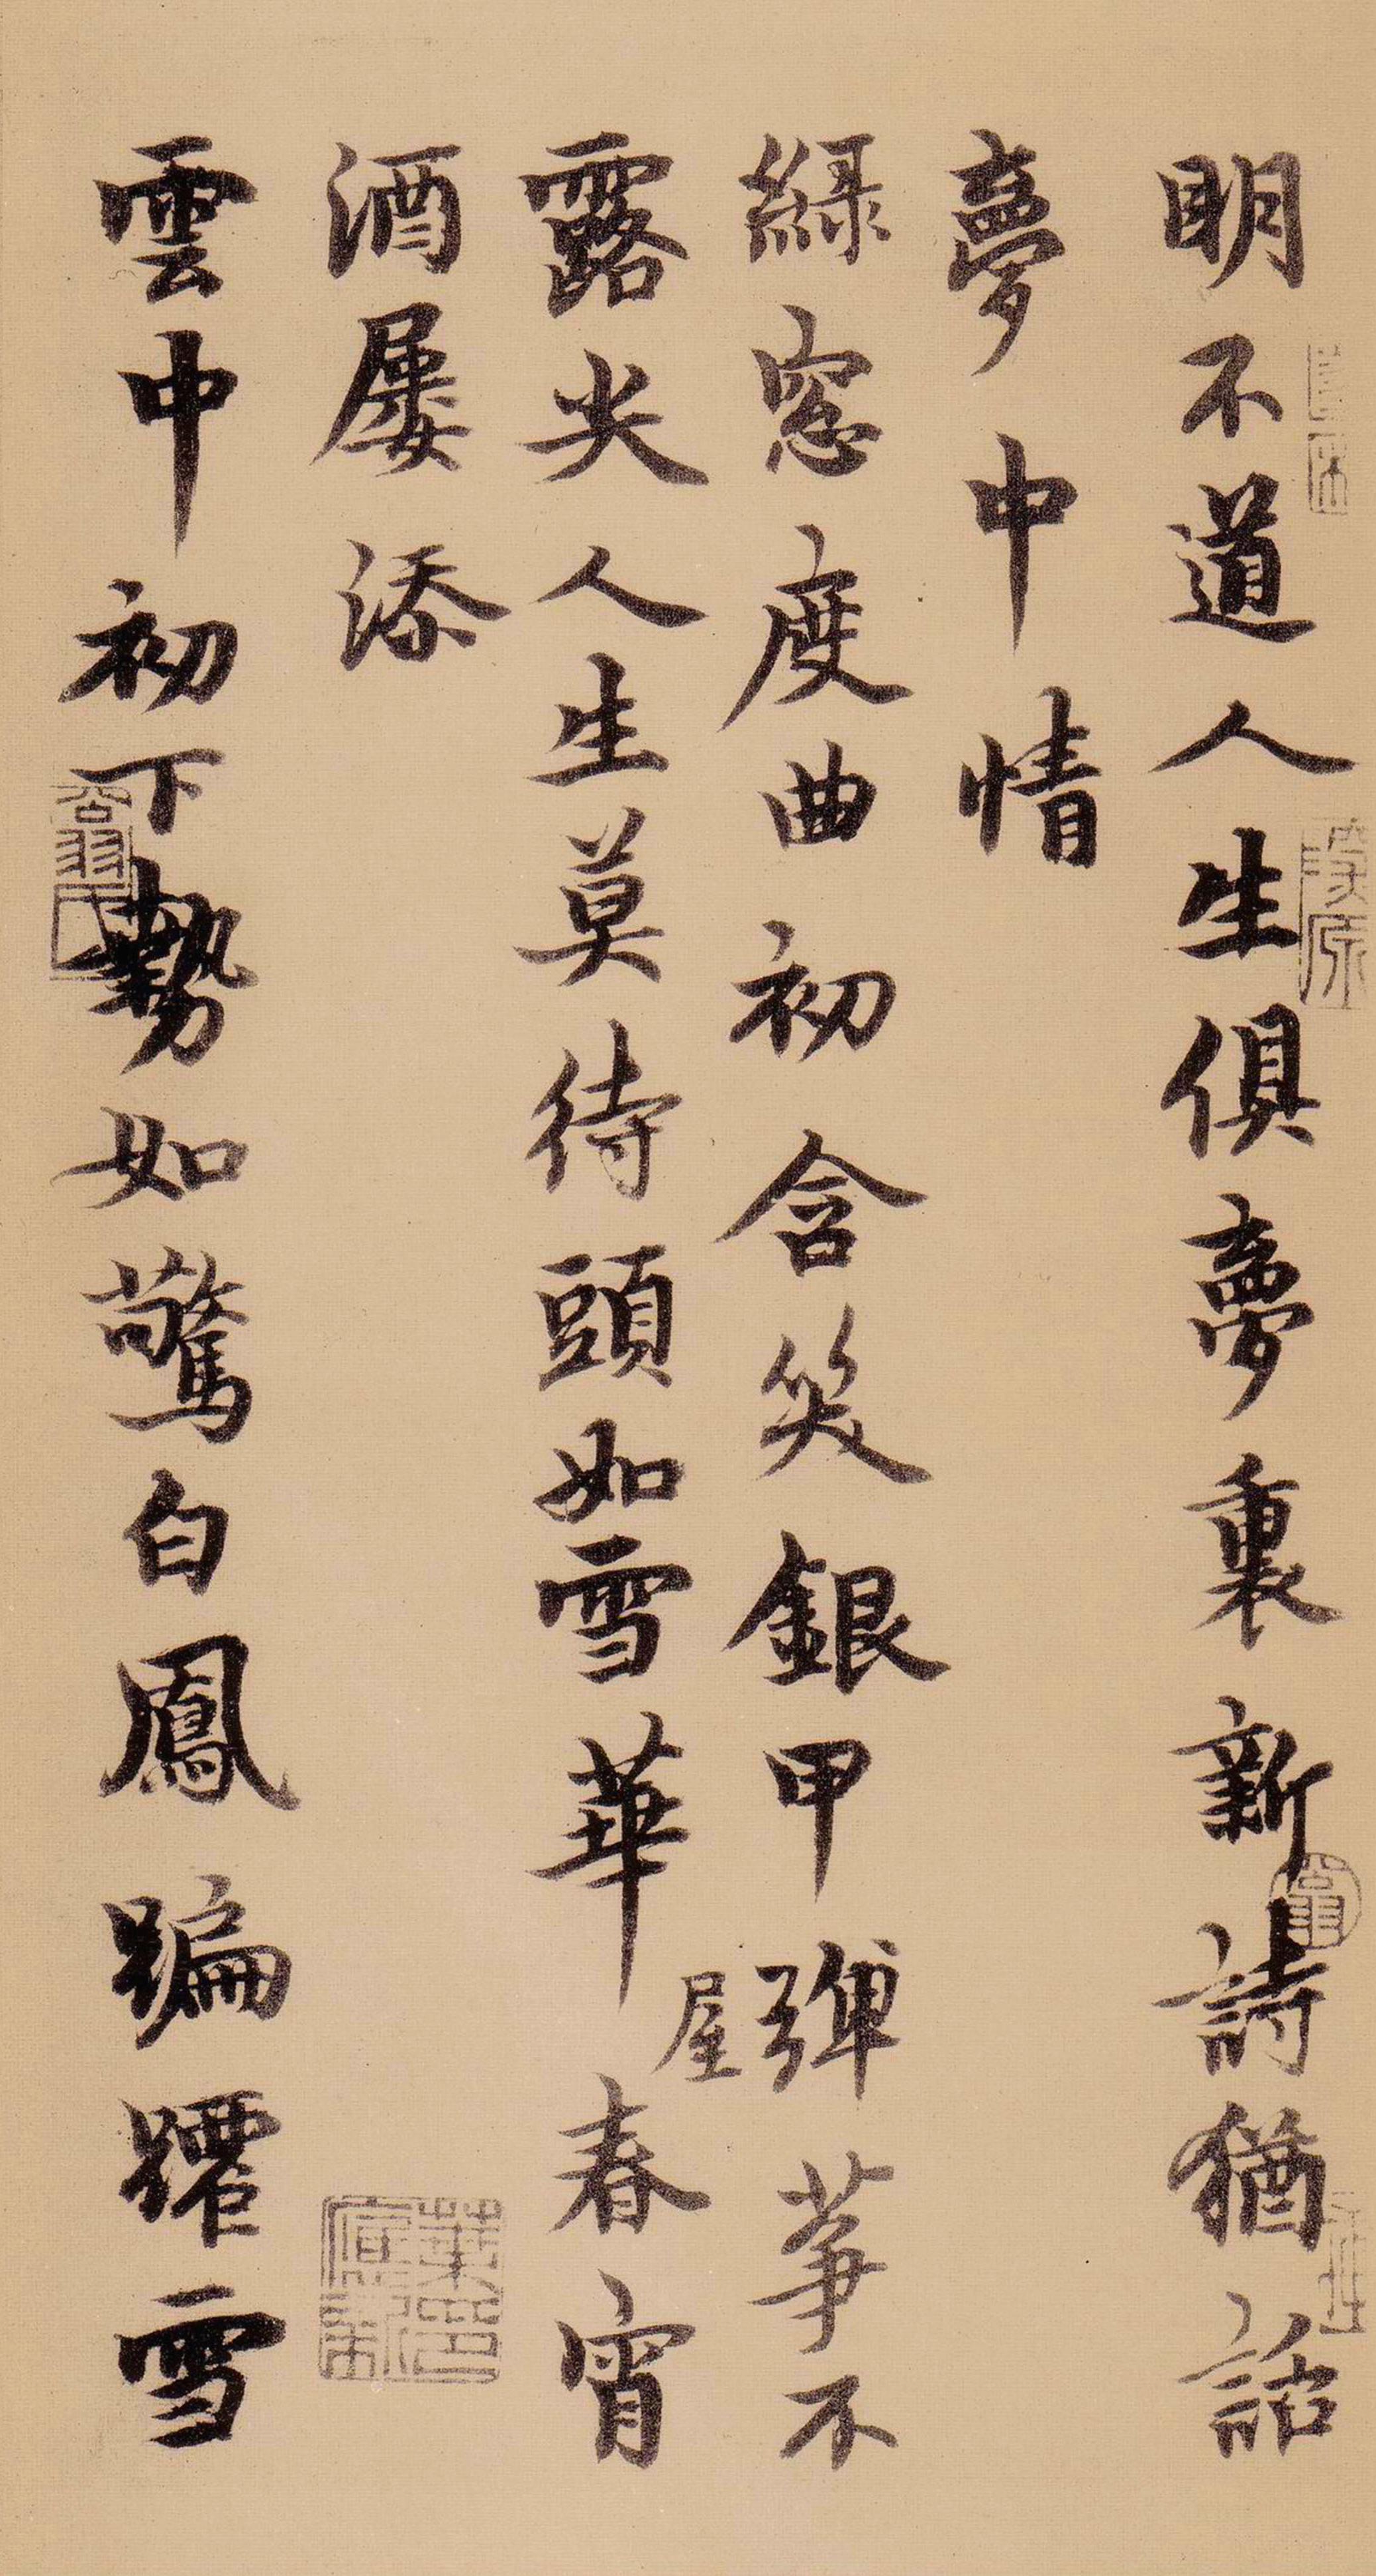 明不道人生俱夢裏新詩猶話
夢中情
綠窓度曲初含笑銀甲彈箏不
屋
露尖人生莫待頭如雪華春宵
酒屢添
雲中初下勢如驚白鳳蹁躚雪